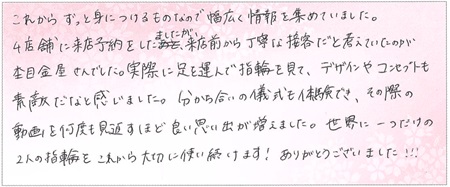 これから ずっと身につけるものなので幅広く情報を集めていました。
4店舗に来店予約をしましたが、来店前から丁寧な接客だと考えていたのが
杢目金屋さんでした。実際に足を運んで指輪を見て、デザインやコンセプトも
素敵だなと感じました。分かち合いの儀式も体験でき、その際の
動画を何度も見返すほど良い思い出が増えました。世界に一つだけの
2人の指輪を これから大切に使い続けます! ありがとうございました!!!